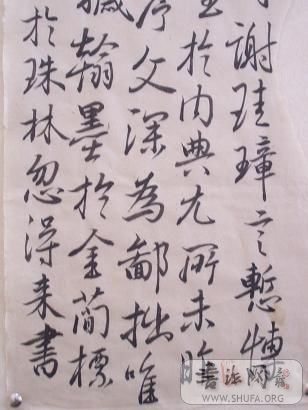 謝珪璋言慙博
至於內典尤所未
序文深為鄙拙唯
穢翰墨於金簡標
於珠林忽得来書
WWW.SHUFA.ORG